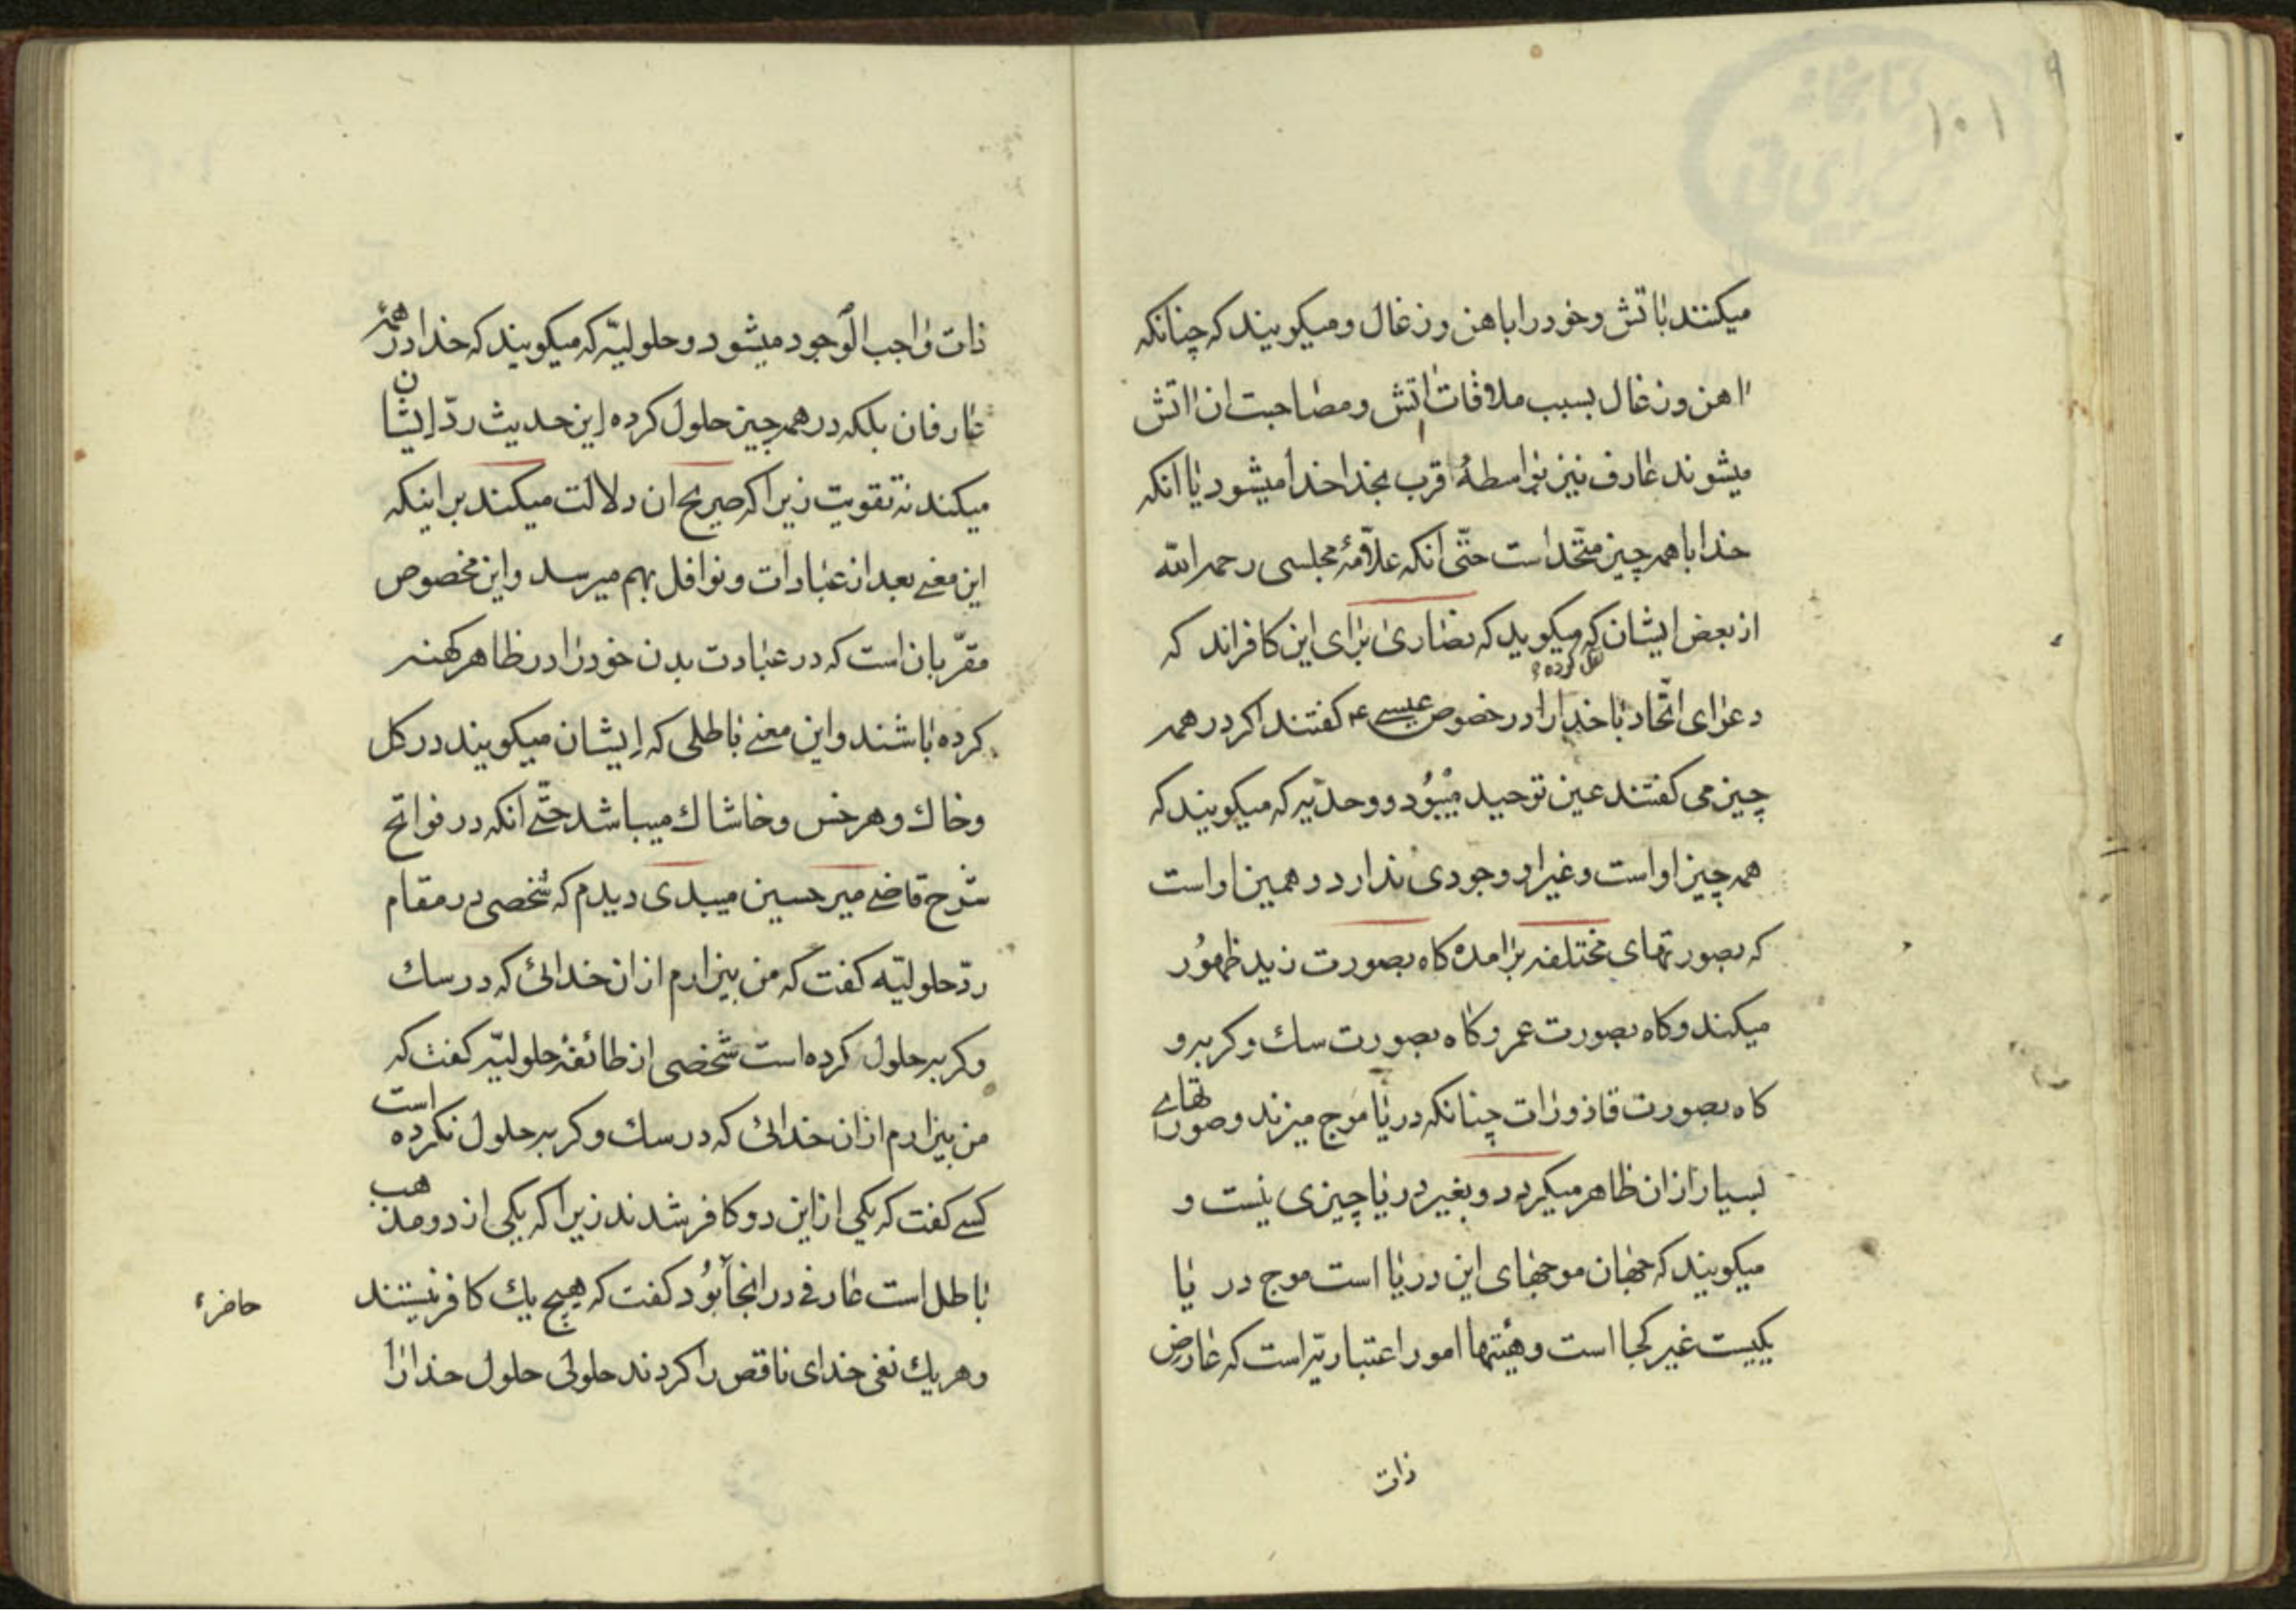 ۱۰۱
میکنند باتش و خود را باهن و زغال و میکویند که چنانکه
اهن و زغال بسبب ملاقات اتش و مصاحبت ان اتش
میشوند عارف نیز بواسطهٔ قرب بخدا خدا میشود یا انکه
خدا با همه چیز متّحد است حتّی انکه علاّمهٔ مجلسی رحمه الله
از بعض ایشان نقل کرده که میکوید که نصاری برای این کافراند که
دعوای اتّحاد با خدا را در خصوص عیسی ع کفتند اکر در همه
چیز می کفتند عین توحید میبُود و وحدّیه که میکویند که
همه چیز او است و غیر او وجودی ندارد و همین او است
که بصورتهای مختلفه برامده کاه بصورت زید ظهُور
میکند و کاه بصورت عمر و کاه بصورت سك و کربه و
کاه بصورت قاذورات چنانکه دریا موج میزند و صورتهای
بسیار از ان ظاهر میکردد و بغیر دریا چیزی نیست و
میکویند که جهان موجهای این دریا است موج در یا
یکیست غیر کجا است و هیئتها امور اعتباریّه است که عارض
ذات
ذات واجب الوجود میشود و حلولیّه که میکویند که خدا در همه
عارفان بلکه در همه چیز حلول کرده این حدیث ردّ ایشان
میکند نه تقویت زیرا که صریح ان دلالت میکند بر اینکه
این معنی بعد از عبادات و نوافل بهم میرسد و این مخصوص
مقرّبان است که در عبادت بدن خود را در ظاهر کهنه
کرده باشند و این معنی باطلی که ایشان میکویند در کل
و خاك و هر خس و خاشاك میباشد حتّی انکه در فواتح
شرح قاضی میر حسین میبدی دیدم که شخصی در مقام
ردّ حلولیّه کفت که من بیزارم از ان خدائی که در سك
و کربه حلول کرده است شخصی از طائفهٔ حلولیّه کفت که
من بیزارم از ان خدائی که در سك و کربه حلول نکرده است
کسی کفت که یکی از این دو کافر شدند زیرا که یکی از دو مذهب
باطل است عارفی در انجا بُود کفت که هیچ یك کافر نیستند
حاضر
و هر یك نفی خدای ناقص را کردند حلولی حلول خدا را